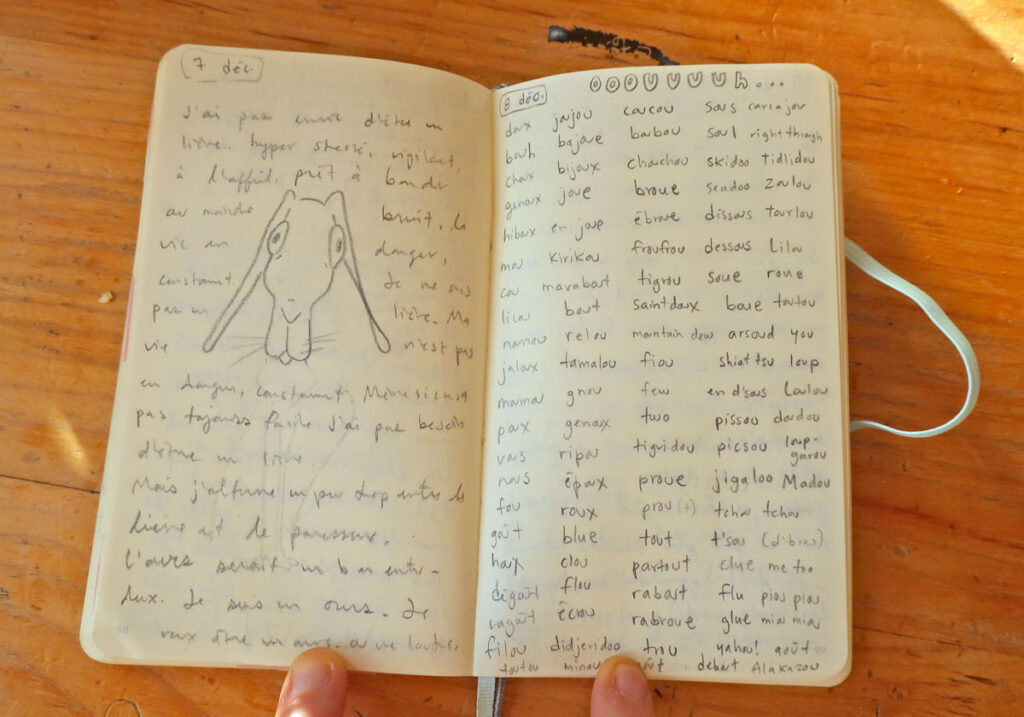 7 déc.
J'ai pas envie d'être un
lièvre. hyper stressé, vigilant,
à l'affût, prêt à bondir
au moindre bruit. La
vie en danger,
constamment. Je ne suis
pas un lièvre. Ma
vie n'est pas
en danger, constamment. Même si c'est
pas toujours facile j'ai pas besoin
d'être un lièvre.
Mais j'alterne un peu trop entre le
lièvre et le paresseux.
L'ours serait un bon entre-
deux. Je suis un ours. Je
veux être un ours. ou une loutre.
98
OOOUUUUh...
8 déc.
doux joujou coucou sous carcajou
bouh bajoue boubou soul right through
choux bijoux chouchou skidoo tidlidou
genoux joue broue seadoo zoulou
hiboux en joue ébroue dissous tourlou
mou kirikou froufrou dessous Lilou
cou marabout tigrou soue roue
licou bout saindoux boue toutou
nounou relou mountain dew arsoud you
jaloux tamalou fiou shiattsu loup
mamou gnou few en d'sous Loulou
poux genoux two pissou doudou
vous ripou tiguidou picsou loup-garou
nous époux proue jigaloo Madou
fou roux prou(t) tchou tchou
goût blue tout t'sou (d'bras)
houx clou partout clue me too
dégoût flou rabout flu piou piou
ragoût écrou rabroue glue miou miou
filou didjeridoo trou yahou! août
toutou minou août debout Alakazou
99